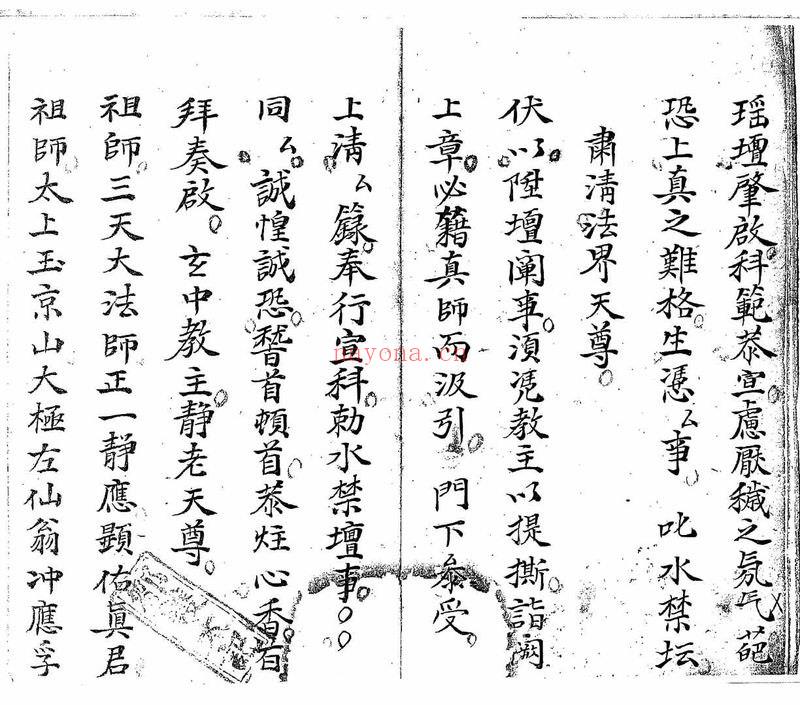 瑶壇肇啟科範恭宣慮厭穢之氛气葩
恐上真之難格生憑厶事 叱水禁坛
肅清法界天尊
伏以陞壇阐事湏凭教主以提撕詣闕
上章必籍真師而汲引 門下叅受
上清厶籙奉行宣科勅水禁壇事
同厶誠惶誠恐稽首頓首恭炷心香百
拜奏啟 玄中教主静老天尊
祖師三天大法師正一靜應顯佑真君
祖師太上玉京山大極左仙翁冲應孚
nayona.cn